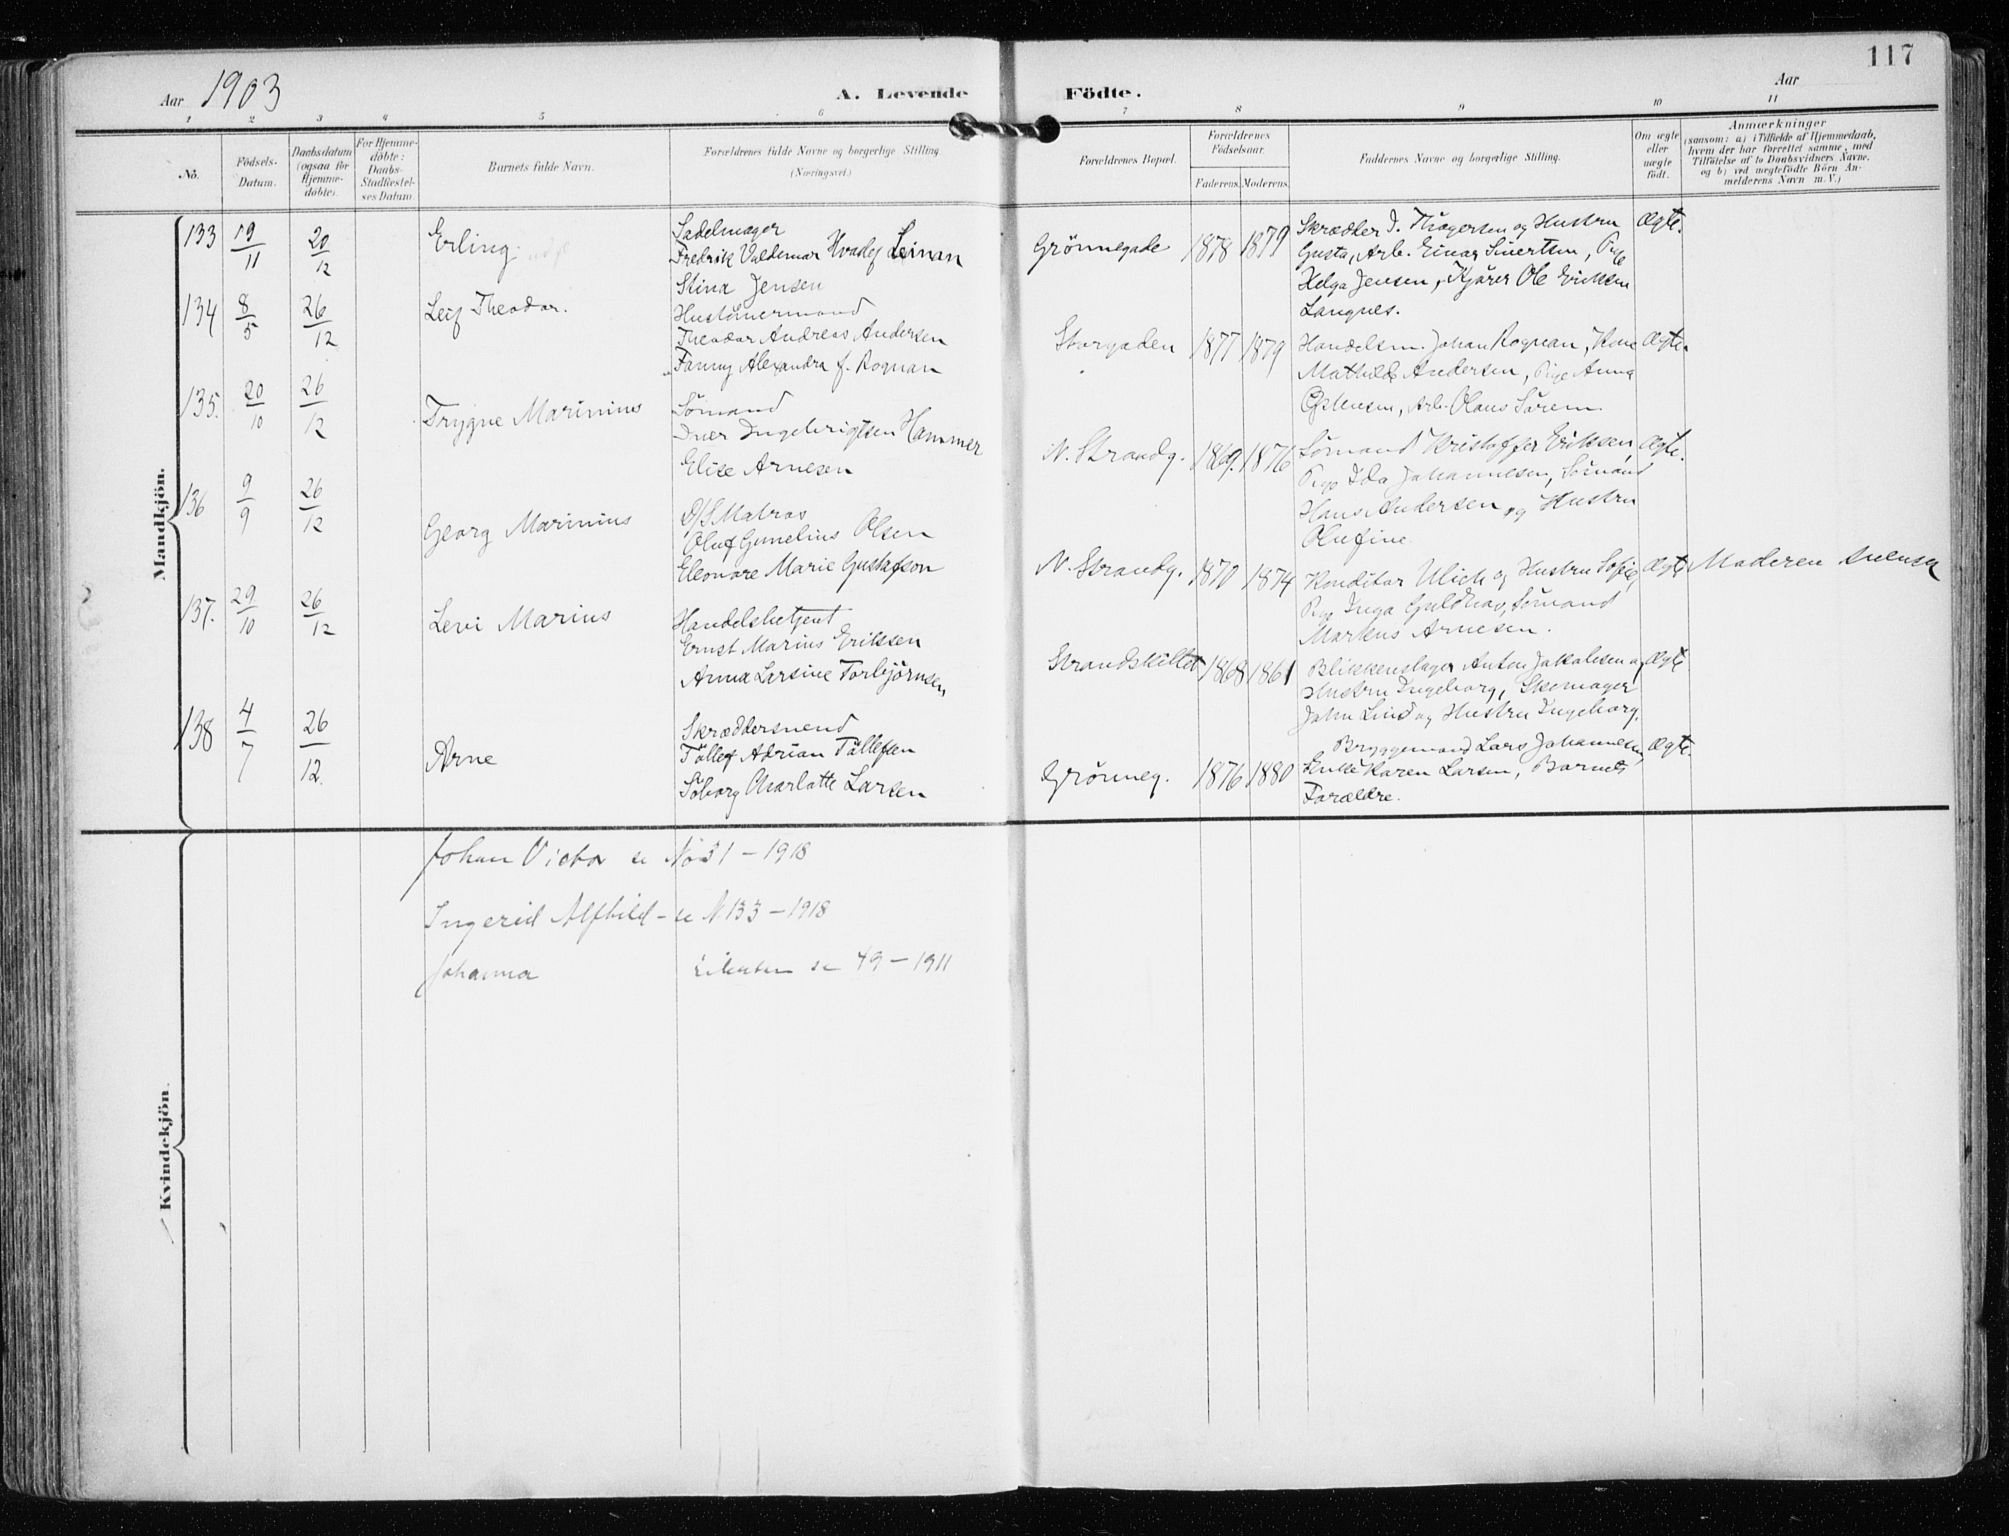 117
Aar 1903
A. Levende Födte.
Aar
1 2 3 4 5 6 7 8 9 10 11
No.
Födsels-
Datum.
Daabsdatum
(ogsaa for
Hjemme-
döbte).
For Hjemme-
döbte:
Daabs-
Stadfæstel-
ses Datum
Barnets fulde Navn.
Forældrenes fulde Navne og borgerlige Stilling.
(Næringsvei.)
Forældrenes Bopæl.
Forældrenes
Födselsaar.
Faderens. Moderens.
Faddernes Navne og borgerlige Stilling.
Om ægte
eller
uægte
födt.
Anmærkninger
(saasom: a) i Tilfælde af Hjemmedaab,
hvem der har forrettet samme, med
Tilföielse af to Daabsvidners Navne,
og b) ved uægtefödte Börn An-
melderens Navn m. V.)
Mandkjön.
133 19/11 20/12 Erling
Sadelmager
Fredrik Valdemar Hvadef Leinan
Stina Jensen
Grönnegade 1878 1879
Skrædder I. Thagersen og Hustru
Gusta, Arb. Einar Sivertsen, Pige
Helga Jensen, Kjörer Ole Eriksen
Langnes.
Ægte.
134 8/5 26/12 Leif Theodor.
Hustömermand
Theodor Andreas Andersen
Fanny Alexandra f. Rognan
Storgaden 1877 1879
Handelsm. Johan Rognan, Kone
Mathilde Andersen, Pige Anna
Arb. Olaus Sörem.
Ægte
135. 20/10 26/12 Trygve Marinius
Sömand
Iver Ingebrigtsen Hammer
Elise Arnesen
N. Strandg. 1869. 1876
Sömand Kristoffer Eriksen,
Pige Ida Johannesen, Sömand
Hans Andersen og Hustru
Olufine.
Ægte.
136 9/9 26/12 Georg Marinius
D/S Matros
Oluf Gunelius Olsen
Eleonore Marie Gustafson
N. Strandg. 1870 1874
Konditor Ulich og Hustru Sofie,
Pige Inga Guldhav, Sömand
Markus Arnesen.
Ægte Moderen svensk
137. 29/10 26/12 Levi Marius
Handelsbetjent
Ernst Marius Eriksen
Anna Larsine Torbjörnsen
Strandskillet 1868 1861
Blikkenslager Anton Jakobsen og
Hustru Ingeborg, Skomager
John Lind og Hustru Ingeborg.
Ægte
138 4/7 26/12. Arne
Skræddersvend
Tollef Adrian Tollefsen
Soborg Charlotte Larsen
Grönneg. 1876 1880
Bryggemand Lars Johannesen,
Enke Karen Larsen, Barnets
Forældre.
Ægte.
Kvindekjön.
Johan Victor se No 31 - 1918
Ingerid Alfhild - se N 133 - 1918
Johanna se 49 - 1911